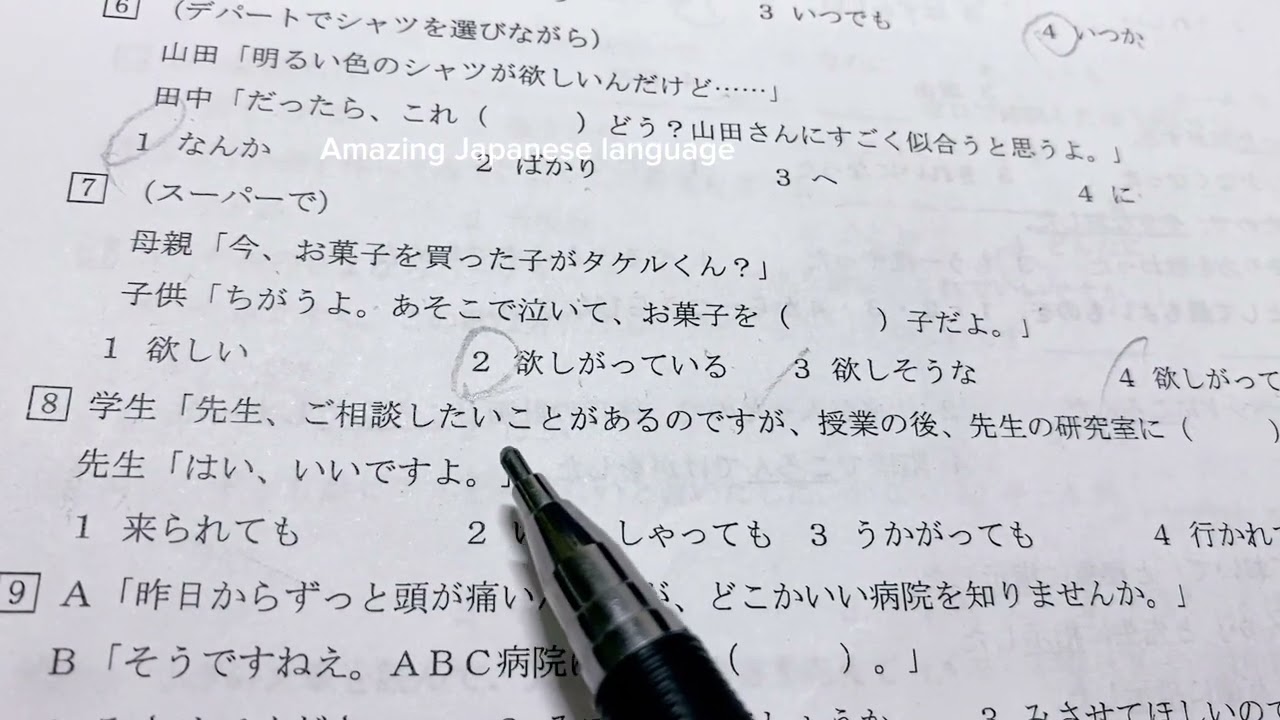 6 (デパートでシャツを選びながら) 3 いつでも 4 いつか
山田「明るい色のシャツが欲しいんだけど……」
田中「だったら、これ( )どう？山田さんにすごく似合うと思うよ。」
1 なんか 2 ばかり 3 へ 4 に
Amazing Japanese language
7 (スーパーで)
母親「今、お菓子を買った子がタケルくん？」
子供「ちがうよ。あそこで泣いて、お菓子を( )子だよ。」
1 欲しい 2 欲しがっている 3 欲しそうな 4 欲しがって
8 学生「先生、ご相談したいことがあるのですが、授業の後、先生の研究室に( )
先生「はい、いいですよ。」
1 来られても 2 しゃっても 3 うかがっても 4 行かれ
9 A「昨日からずっと頭が痛い が、どこかいい病院を知りませんか。」
B「そうですねえ。ABC病院 ( )。」
3 みさせてほしいので